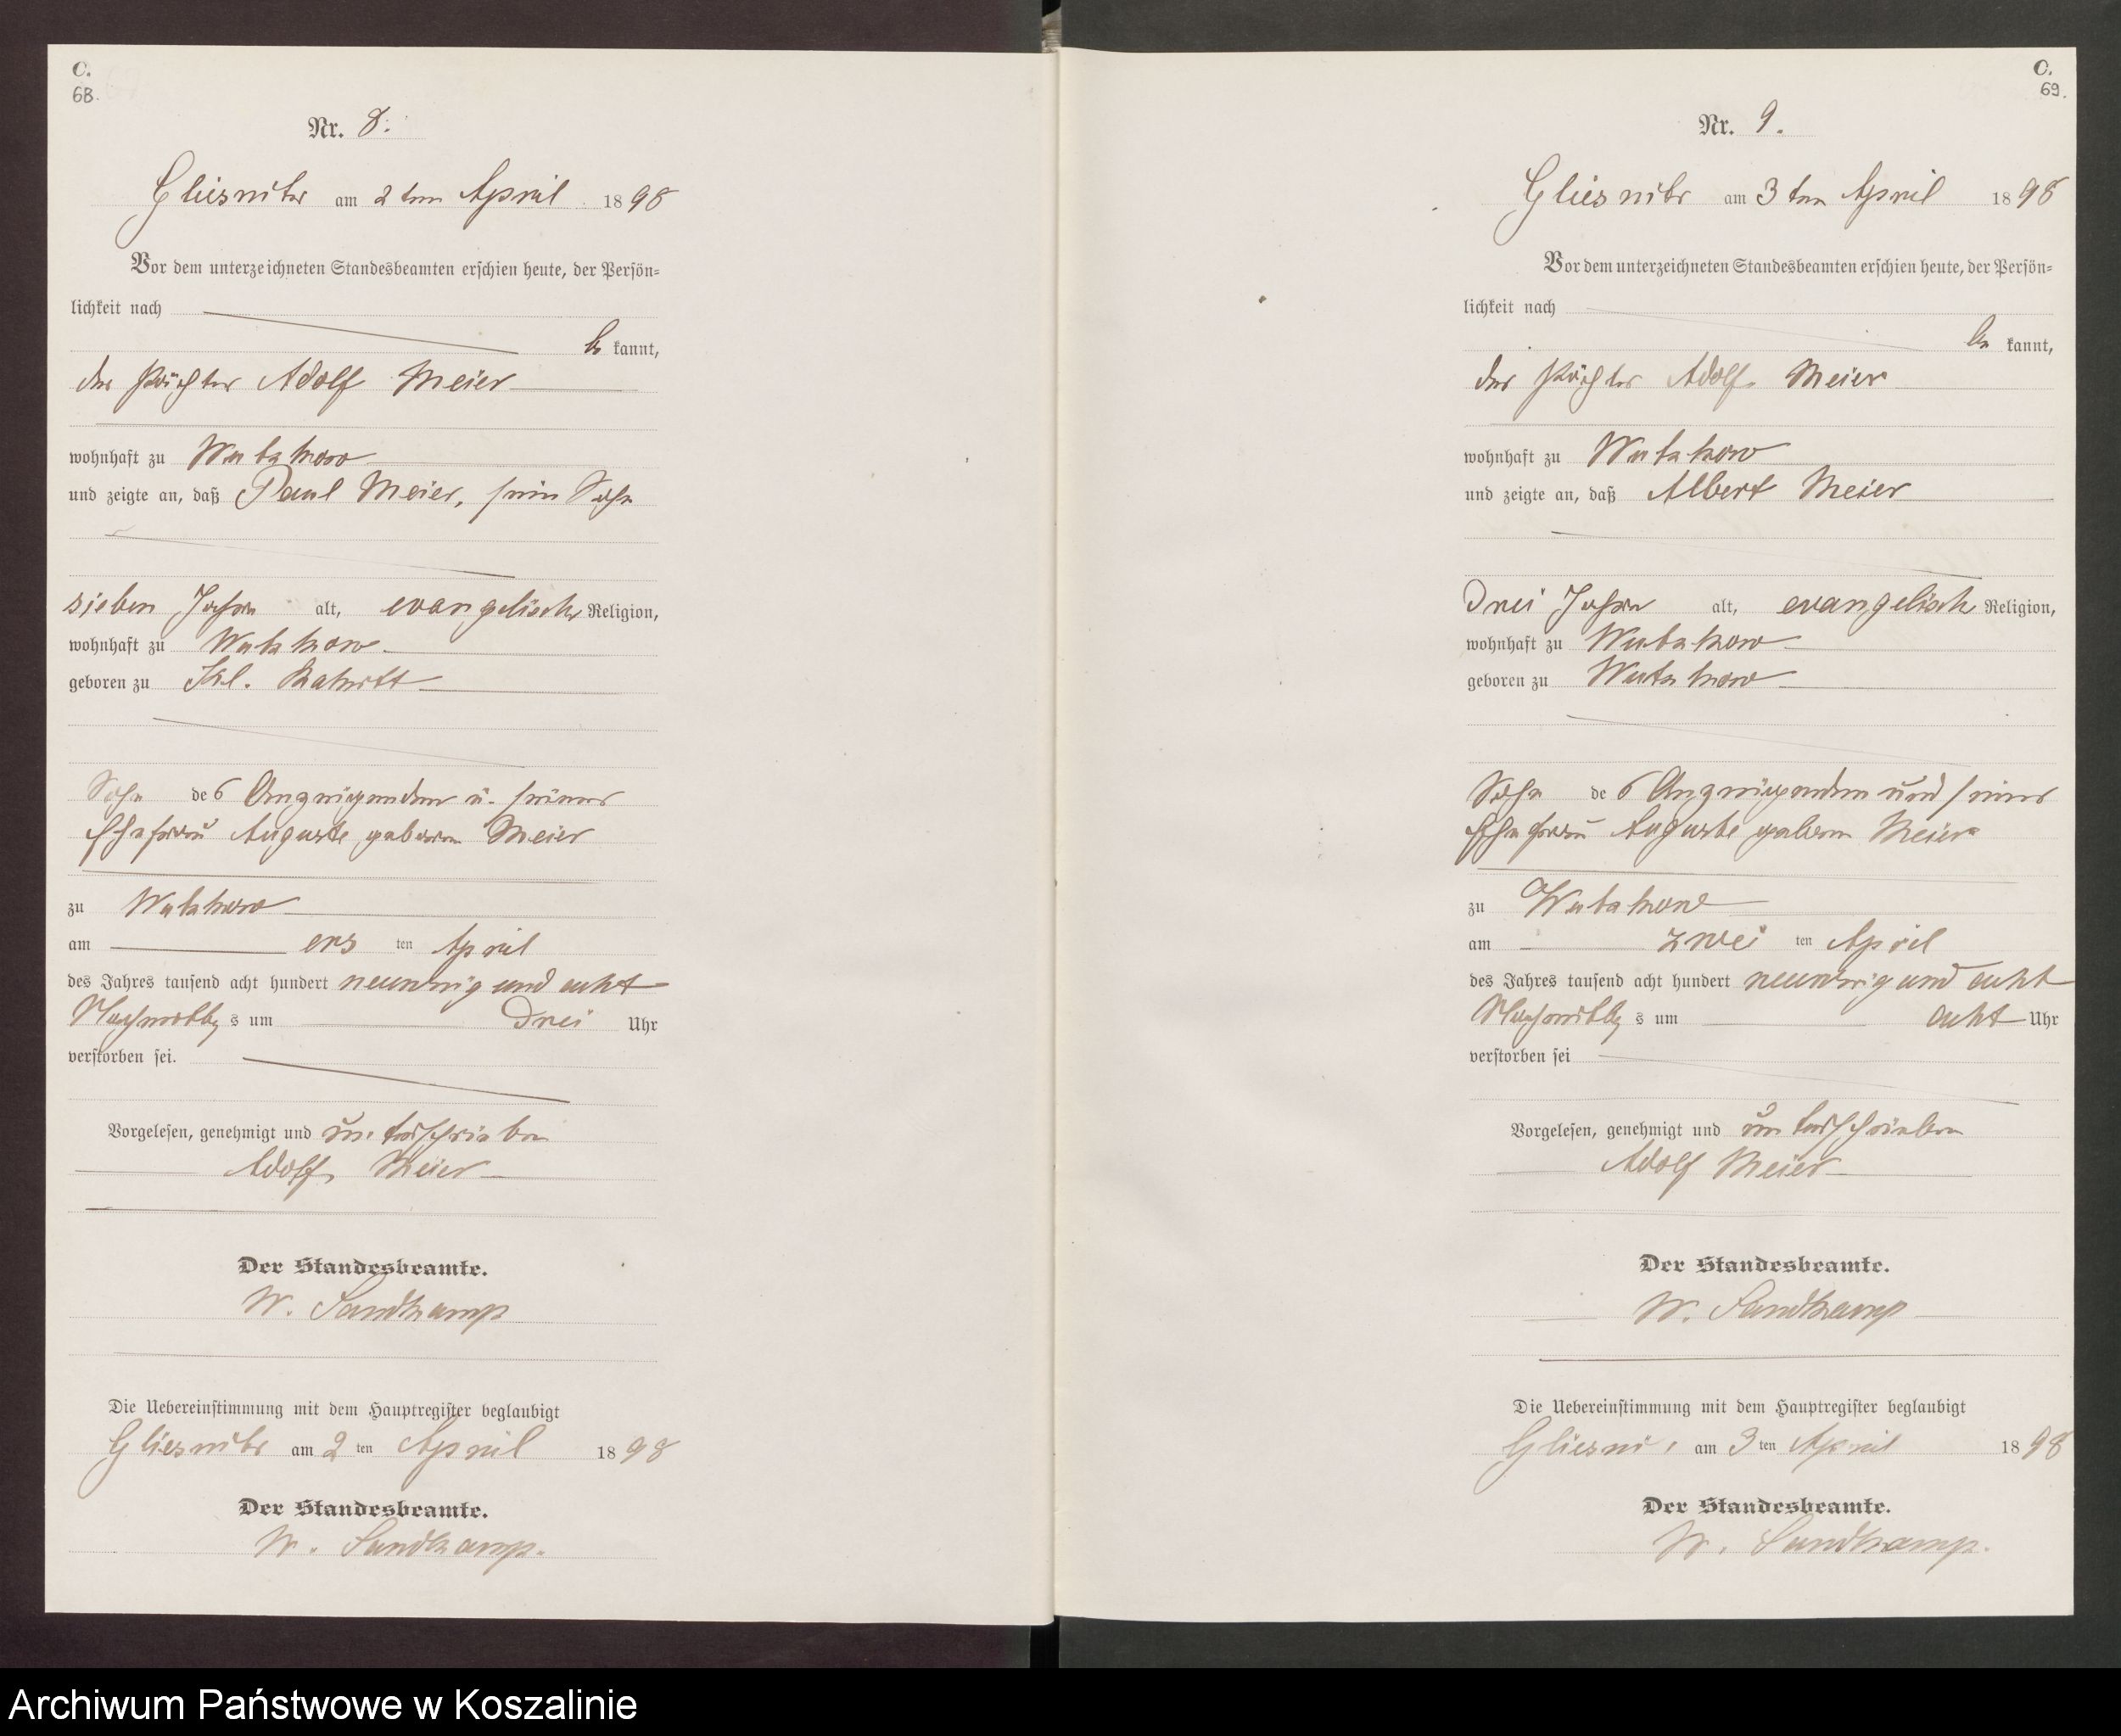 C.
68.
Nr. 8.
Gliesnitz am 2ten April 1898
Vor dem unterzeichneten Standesbeamten erschien heute, der Persön=
lichkeit nach
be kannt,
der Pächter Adolf Meier
wohnhaft zu Wutzkow
und zeigte an, daß Paul Meier, sein Sohn
sieben Jahre alt, evangelischer Religion,
wohnhaft zu Wutzkow
geboren zu Kl. Rakitt
Sohn des Anzeigenden u. seiner
Ehefrau Auguste geboren Meier
zu Wutzkow
am ers ten April
des Jahres tausend acht hundert neunzig und acht
Nachmittags um Drei Uhr
verstorben sei.
Vorgelesen, genehmigt und unterschrieben
Adolf Meier
Der Standesbeamte.
W. Sandkamp
Die Uebereinstimmung mit dem Hauptregister beglaubigt
Gliesnitz am 2 ten April 1898
Der Standesbeamte.
W. Sandkamp.
C.
69.
Nr. 9.
Gliesnitz am 3ten April 1898
Vor dem unterzeichneten Standesbeamten erschien heute, der Persön=
lichkeit nach
be kannt,
der Pächter Adolf Meier
wohnhaft zu Wutzkow
und zeigte an, daß Albert Meier
Drei Jahre alt, evangelischer Religion,
wohnhaft zu Wutzkow
geboren zu Wutzkow
Sohn des Anzeigenden und seiner
Ehefrau Auguste geboren Meier
zu Wutzkow
am zwei ten April
des Jahres tausend acht hundert neunzig und acht
Nachmittags um acht Uhr
verstorben sei
Vorgelesen, genehmigt und unterschrieben
Adolf Meier
Der Standesbeamte.
W. Sandkamp
Die Uebereinstimmung mit dem Hauptregister beglaubigt
am 3 ten April 1898
Der Standesbeamte.
W. Sandkamp.
Archiwum Państwowe w Koszalinie